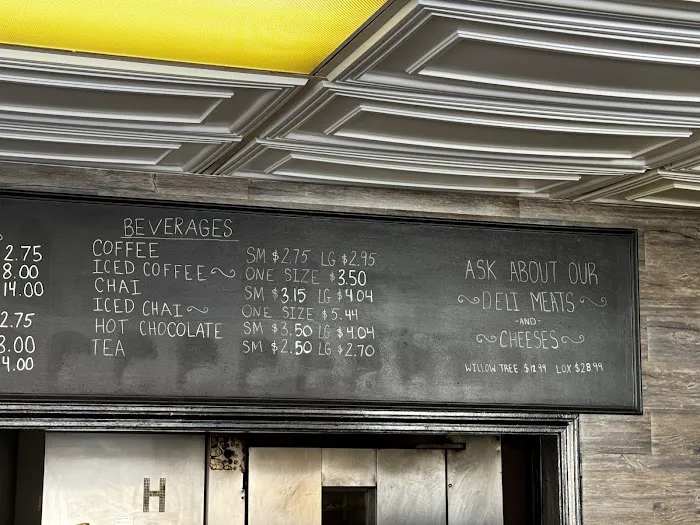 2.75
8.00
14.00
2.75
8.00
4.00
BEVERAGES
COFFEE SM $2.75 LG $2.95
ICED COFFEE ONE SIZE $3.50
CHAI SM $3.15 LG $4.04
ICED CHAI ONE SIZE $5.44
HOT CHOCOLATE SM $3.50 LG $4.04
TEA SM $2.50 LG $2.70
ASK ABOUT OUR
DELI MEATS
-AND-
CHEESES
WILLOW TREE $12.99 LOX $28.99
H